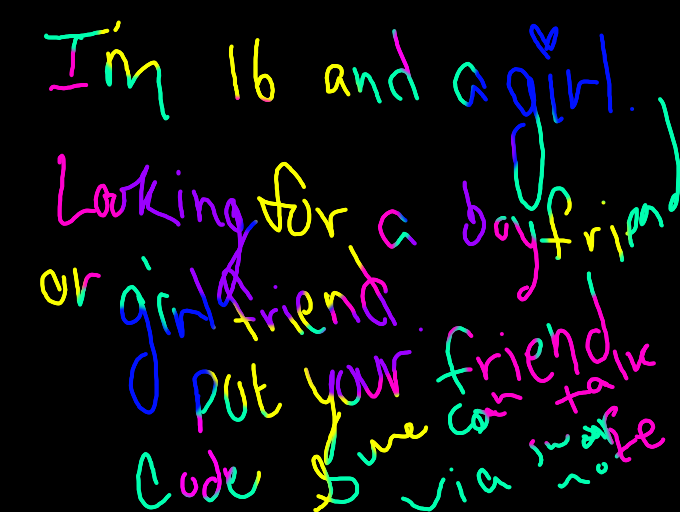 I'm 16 and a girl.
Looking for a boyfriend
or girlfriend.
put your friend
code & we can talk
via